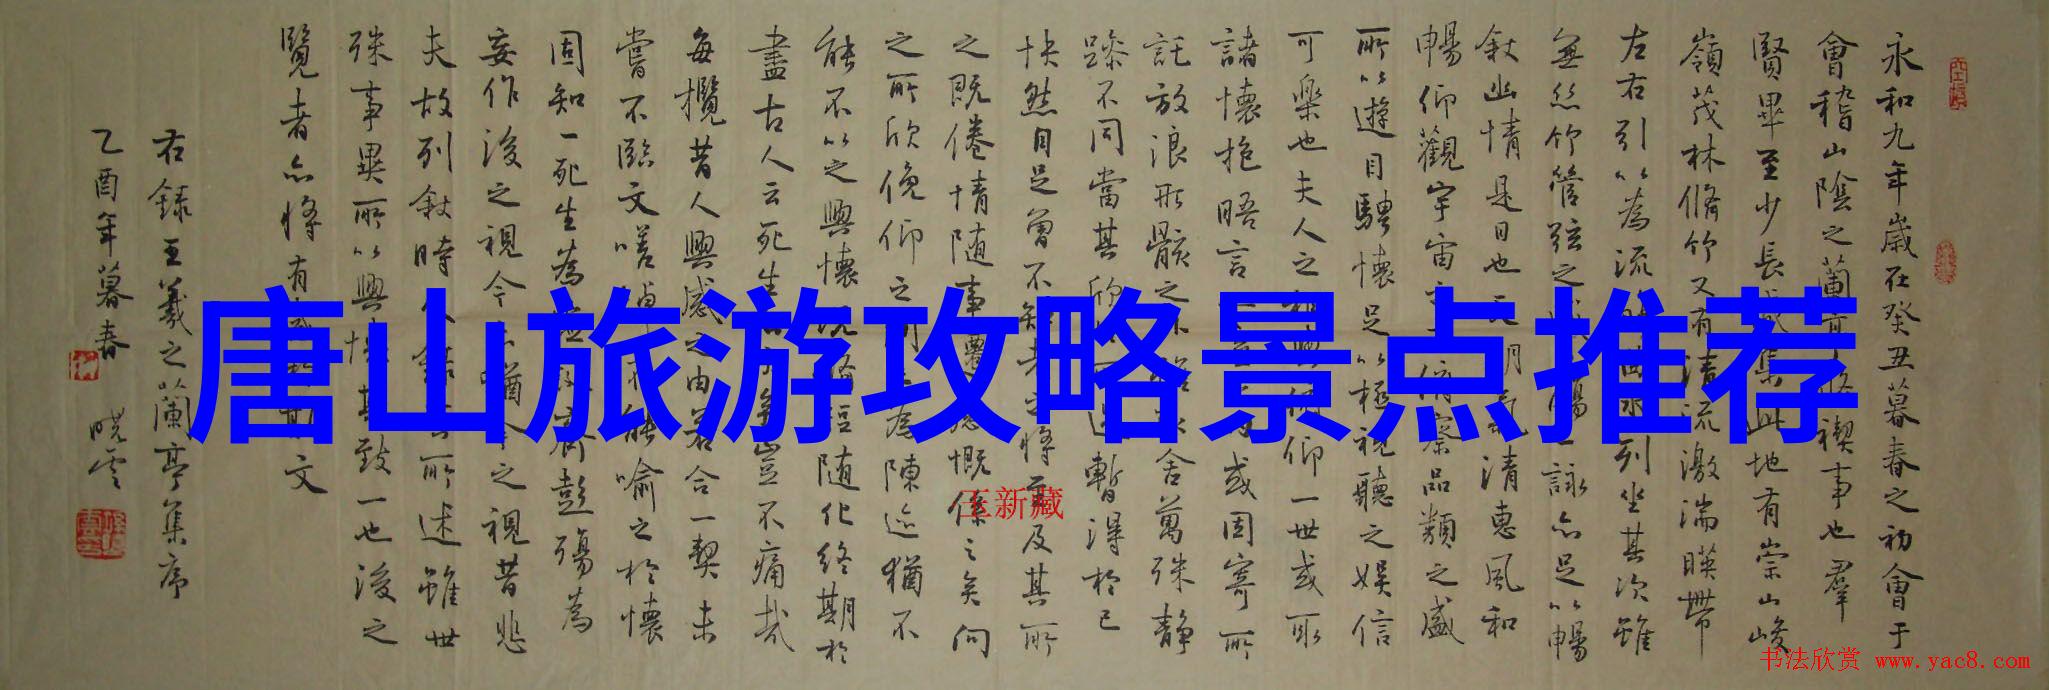 唐山旅游攻略景点推荐
永和九年歲在癸丑暮春之初會于
會稽山陰之蘭亭脩禊事也羣
賢畢至少長咸集此地有崇山峻
嶺茂林脩竹又有清流激湍暎帶
左右引以為流觴曲水列坐其次雖
無絲竹管弦之盛一觴一詠亦足以暢
敘幽情是日也天朗氣清惠風和
暢仰觀宇宙之大俯察品類之盛
所以遊目騁懷足以極視聽之娛信
可樂也夫人之相與俯仰一世或取
諸懷抱晤言一室之內或因寄所
託放浪形骸之外雖趣舍萬殊靜
躁不同當其欣於所遇暫得於己
怏然自足曾不知老之將至及其所
之既倦情隨事遷感慨係之矣向
之所欣俛仰之間以為陳迹猶不
能不以之興懷況脩短隨化終期於
盡古人云死生亦大矣豈不痛哉
每攬昔人興感之由若合一契未
嘗不臨文嗟悼不能喻之於懷
固知一死生為虛誕齊彭殤為
妄作後之視今亦猶今之視昔悲
夫故列敘時人錄其所述雖世
殊事異所以興懷其致一也後之
覽者亦將有感於斯文
右錄王羲之蘭亭集序
乙酉年暮春 曉雲
王新藏
书法欣赏 www.yac8.com